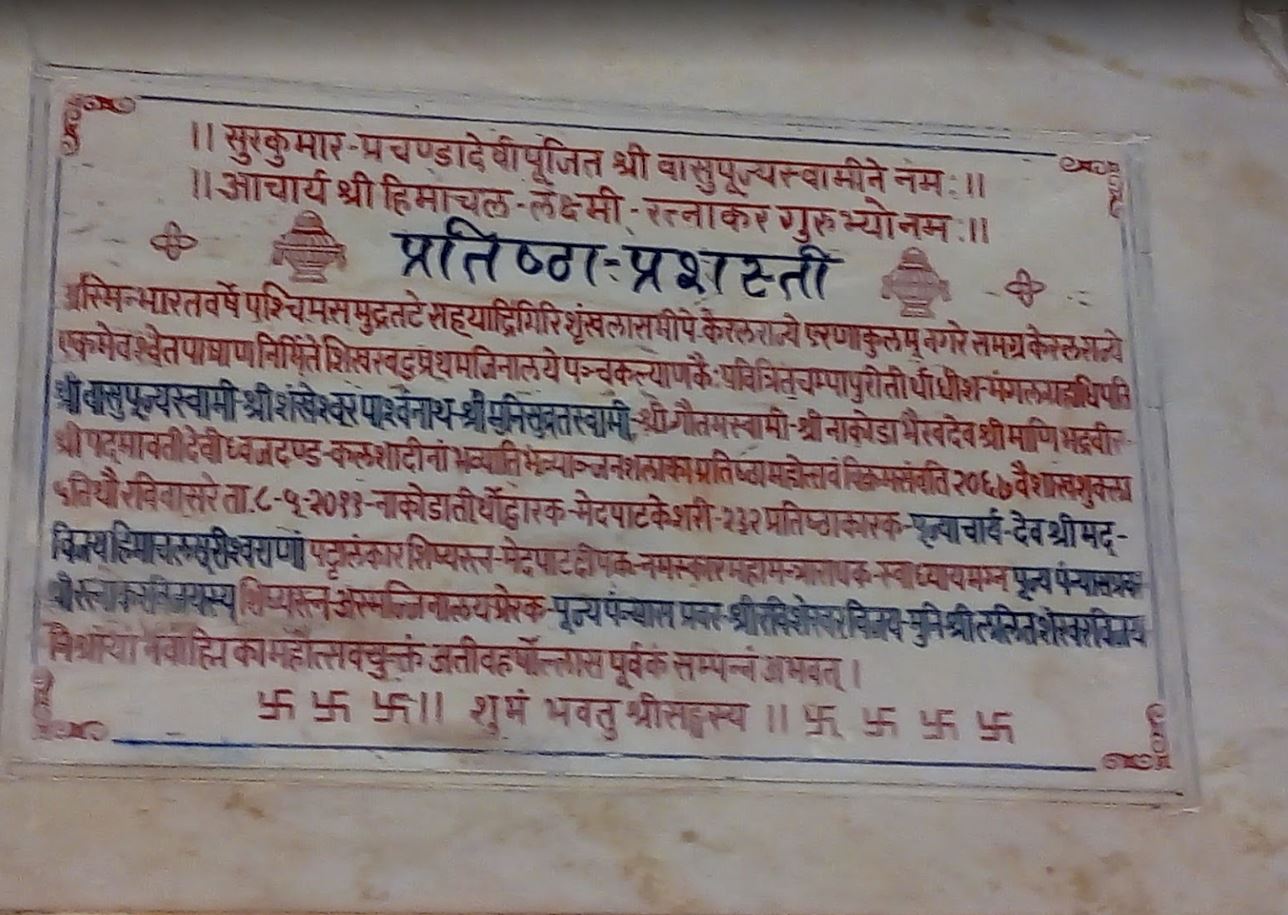 ।। सुरकुमार-प्रचण्डादेवीपूजित श्री वासुपूज्यस्वामीने नमः ।।
।। आचार्य श्री हिमाचल-लक्ष्मी-रत्नाकर गुरुभ्यो नमः ।।
प्रतिष्ठा-प्रशस्ती
अस्मिन्भारतवर्षे पश्चिमसमुद्रतटे सह्याद्रिगिरिशृंखलासमीपे केरलराज्ये एरणाकुलम् नगरे समग्र केरलराज्ये
एकमेव श्वेतपाषाणनिर्मिते शिखरबद्ध प्रथमजिनालये पञ्चकल्याणकैः पवित्रित चम्पापुरीतीर्थाधीश-मंगलग्रहाधिपति
श्री वासुपूज्यस्वामी-श्री शंखेश्वर पार्श्वनाथ-श्री मुनिसुव्रतस्वामी, श्री गौतमस्वामी-श्री नाकोडा भैरवदेव श्री माणिभद्रवीर-
श्री पद्मावतीदेवी ध्वजदण्ड-कलशादीनां भव्यातिभव्याञ्जनशलाका प्रतिष्ठामहोत्सवं विक्रमसंवति २०६७ वैशाखशुक्ला
५ तिथौ रविवासरे ता. ८-५-२०११-नाकोडातीर्थोद्धारक-मेदपाटकेशरी-२३२ प्रतिष्ठाकारक-पूज्याचार्य-देव श्रीमद्-
विजय हिमाचलसूरीश्वराणां पट्टालंकार शिष्यरत्न-मेदपाटदीपक-नमस्कारमहामन्त्राराधक-स्वाध्यायमग्न पूज्य पंन्यासप्रवर
श्री रत्नाकरविजयस्य शिष्यरत्न अस्मज्जिनालय प्रेरक-पूज्य पंन्यास प्रवर-श्री रविशेखरविजय-मुनि श्री ललितशेखरविजय
निश्रायां नवाह्निकामहोत्सवयुक्तं अतीवहर्षोल्लास पूर्वकं सम्पन्नं अभवत् ।
卐 卐 卐 ।। शुभं भवतु श्रीसङ्घस्य ।। 卐 卐 卐 卐